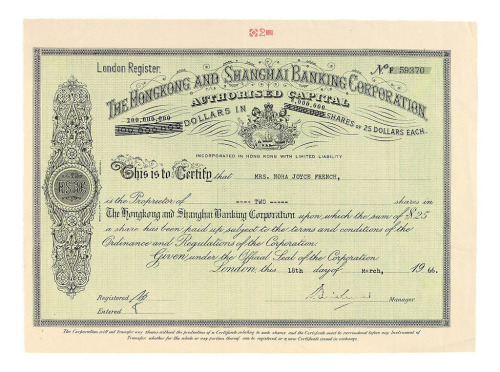 London Register.
No F 59370
THE HONGKONG AND SHANGHAI BANKING CORPORATION.
AUTHORISED CAPITAL
200,000,000 DOLLARS IN ,000,000 SHARES OF 25 DOLLARS EACH.
INCORPORATED IN HONG KONG WITH LIMITED LIABILITY
This is to Certify that MRS. NORA JOYCE FRENCH,
is the Proprietor of ---- TWO ---- shares in
The Hongkong and Shanghai Banking Corporation upon which the sum of $25
a share has been paid up subject to the terms and conditions of the
Ordinance and Regulations of the Corporation.
Given under the Official Seal of the Corporation
London, this 18th day of March, 1966.
Registered
Manager
Entered
The Corporation will not transfer any shares without the production of a Certificate relating to such shares and the Certificate must be surrendered before any Instrument of
Transfer, whether for the whole or any portion thereof can be registered or a new Certificate issued in exchange.